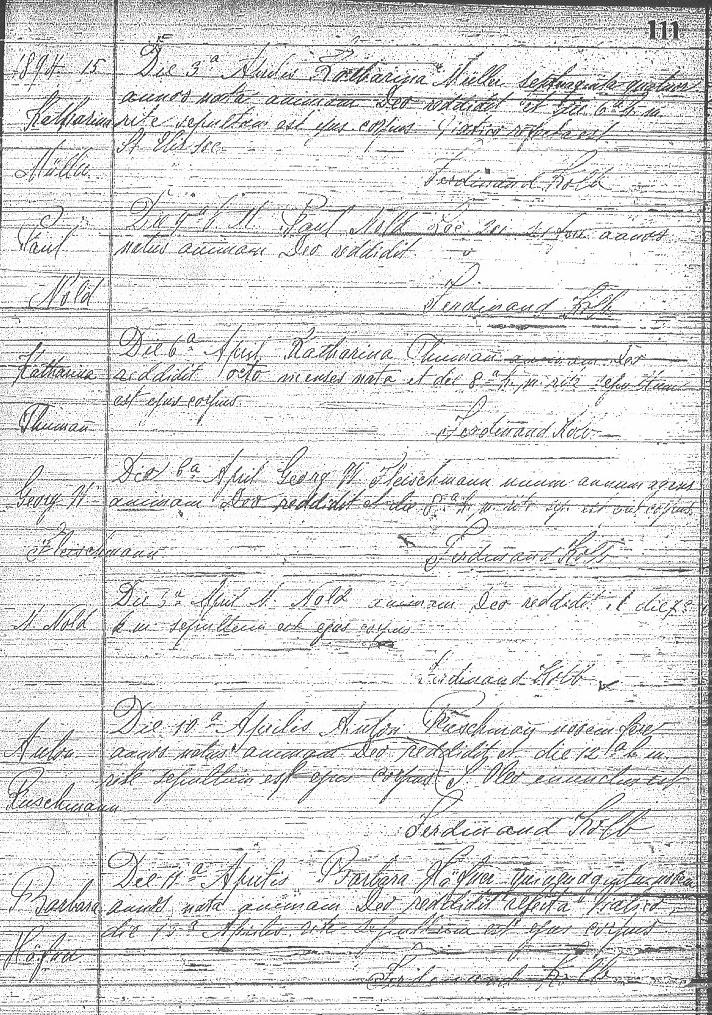 111
1894 15 Die 3a Aprilis Katharina Müller septuaginta quatuor
Katharina annos nata animam Deo reddidit et die 6a h. m.
rite sepultum est ejus corpus
Müller
Ferdinand Kolb
Paul Die h. m. Paul Nold annos
natus animam Deo reddidit
Nold
Ferdinand Kolb
Die 6a April Katharina Thuman animam Deo
Katharina reddidit octo menses nata et die 8a h. m. rite sepultum
est ejus corpus
Thuman Ferdinand Kolb
Die 6a April Georg W Fleischmann unum annum agens
Georg W animam Deo reddidit et die 8a h. m. rite sep. est corpus
Fleischmann Ferdinand Kolb
Die 3a April N. Nold animam Deo reddidit et die
N. Nold h. m. sepultum est ejus corpus
Ferdinand Kolb
Die 10a Aprilis Anton Ruschmann novem fere
Anton annos natus animam Deo reddidit et die 12a h. m.
rite sepultum est ejus corpus S. Oleo inunctus est
Ruschmann
Ferdinand Kolb
Die 11a Aprilis Barbara Häfner novem
Barbara annos nata animam Deo reddidit refecta viatico,
die 13a Aprilis rite sepultum est ejus corpus
Häfner
Ferdinand Kolb